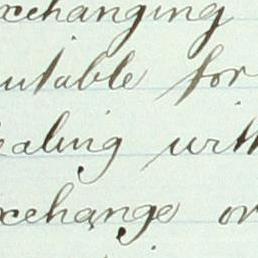 xchanging
uitable for
ealing with
xchange or